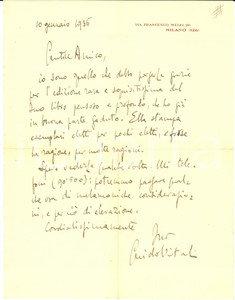 VIA FRANCESCO MELZI
MILANO
10 gennaio 1936
Gentile Amico,
io sono quello che debbo porgere grazie
per l'edizione rara e squisitissima del
Suo libro pensoso e profondo, che ho già
in buona parte goduto. Ella stampa
esemplari eletti per pochi eletti, e
ha ragione, per molte ragioni.
Spero vederla qualche volta. Mi tele-
foni (90-500): potremmo passare qual-
che ora di melanconiche considerazio-
ni, e per ciò di elevazione.
Cordialissimamente
Suo
Guido Vitali